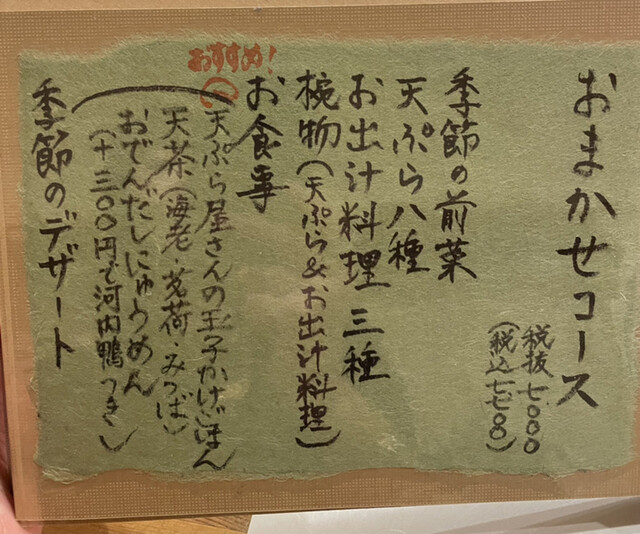 おまかせコース
税抜 七〇〇〇
(税込 七七〇〇)
季節の前菜
天ぷら八種
お出汁料理 三種
椀物(天ぷら&お出汁料理)
お食事
おすすめ!
天ぷら屋さんの玉子かけごはん
天茶(海老・茗荷・みつば)
おでんだしにゅうめん
(+三〇〇円で河内鴨つき)
季節のデザート